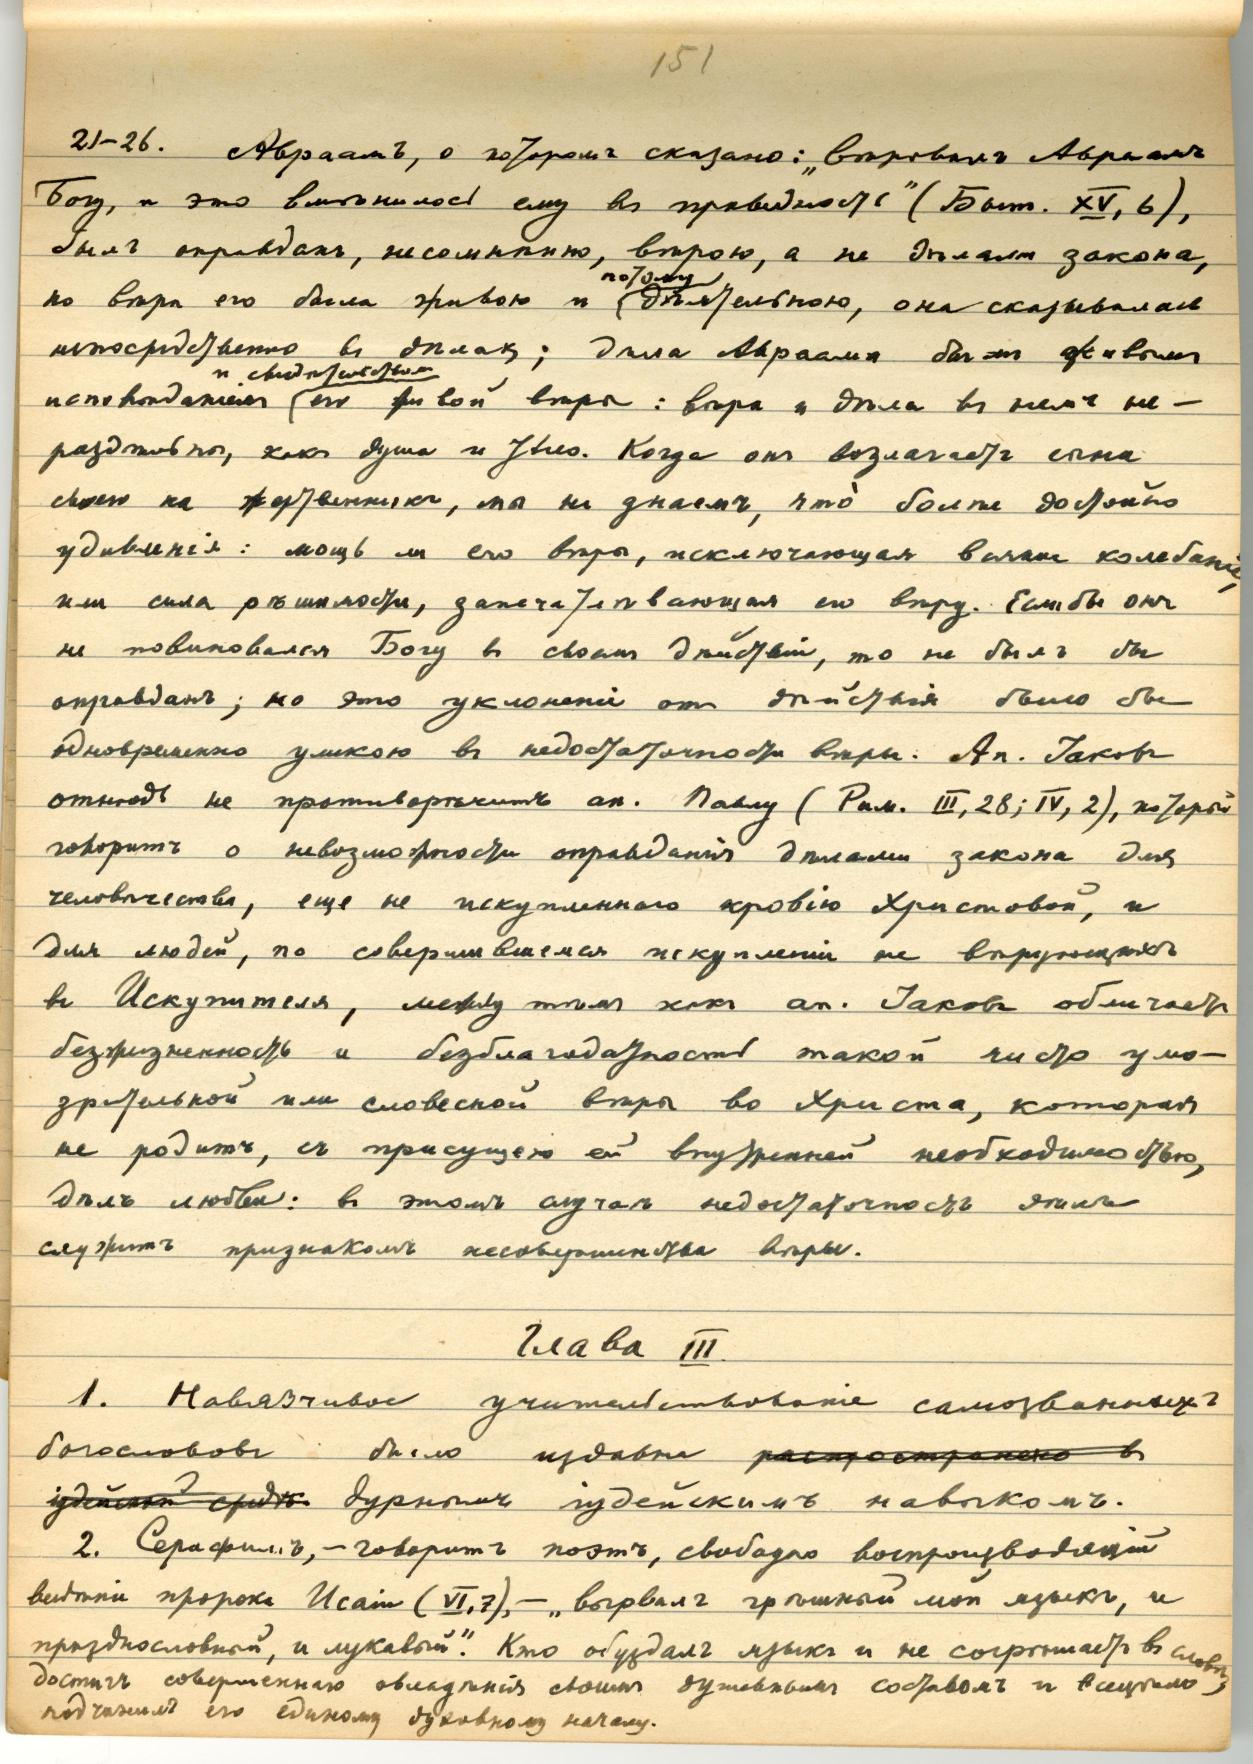 151
21–26. Авраамъ, о которомъ сказано: „вѣровалъ Авраамъ
Богу, и это вмѣнилось ему въ праведность“ (Быт. XV, 6),
былъ оправданъ, несомнѣнно, вѣрою, а не дѣлами закона,
но вѣра его была живою и потому дѣятельною, она сказывалась
непосредственно въ дѣлахъ; дѣла Авраама были живымъ
исповѣданіемъ и свидѣтельствомъ его живой вѣры: вѣра и дѣла въ немъ не–
раздѣльны, какъ душа и тѣло. Когда онъ возлагаетъ сына
своего на жертвенникъ, мы не знаемъ, что̀ болѣе достойно
удивленія: мощь ли его вѣры, исключающая всякие колебаніе,
или сила рѣшимости, запечатлѣвающая его вѣру. Если бы онъ
не повиновался Богу въ своемъ дѣйствіи, то не былъ бы
оправданъ; но это уклоненіе отъ дѣйствія было бы
одновременно уликою въ недостаточности вѣры. Ап. Іаковъ
отнюдь не противорѣчитъ ап. Павлу (Рим. III, 28; IV, 2), который
говоритъ о невозможности оправданія дѣлами закона для
человѣчества, еще не искупленнаго кровію Христовой, и
для людей, по совершившемся искупленіи не вѣрующихъ
въ Искупителя, между тѣмъ какъ ап. Іаковъ обличаетъ
безжизненность и безблагодатность такой чисто умо–
зрительной или словесной вѣры во Христа, которая
не родитъ, съ присущею ей внутренней необходимостью,
дѣлъ любви: въ этомъ случаѣ недостаточность дѣлъ
служитъ признакомъ несовершенства вѣры.
Глава III
1. Навязчивое учительствованіе самозванныхъ
богослововъ было издавна распространено въ
іудейской средѣ дурнымъ іудейскимъ навыкомъ.
2. Серафимъ, – говоритъ поэтъ, свободно воспроизводящій
видѣніе пророка Исаіи (VI, 7), – „вырвалъ грѣшный мой языкъ, и
празднословный, и лукавый“. Кто обуздалъ языкъ и не согрѣшаетъ въ словѣ,
достигъ совершеннаго овладѣнія своимъ душевнымъ составомъ и всецѣло
подчинилъ его единому духовному началу.